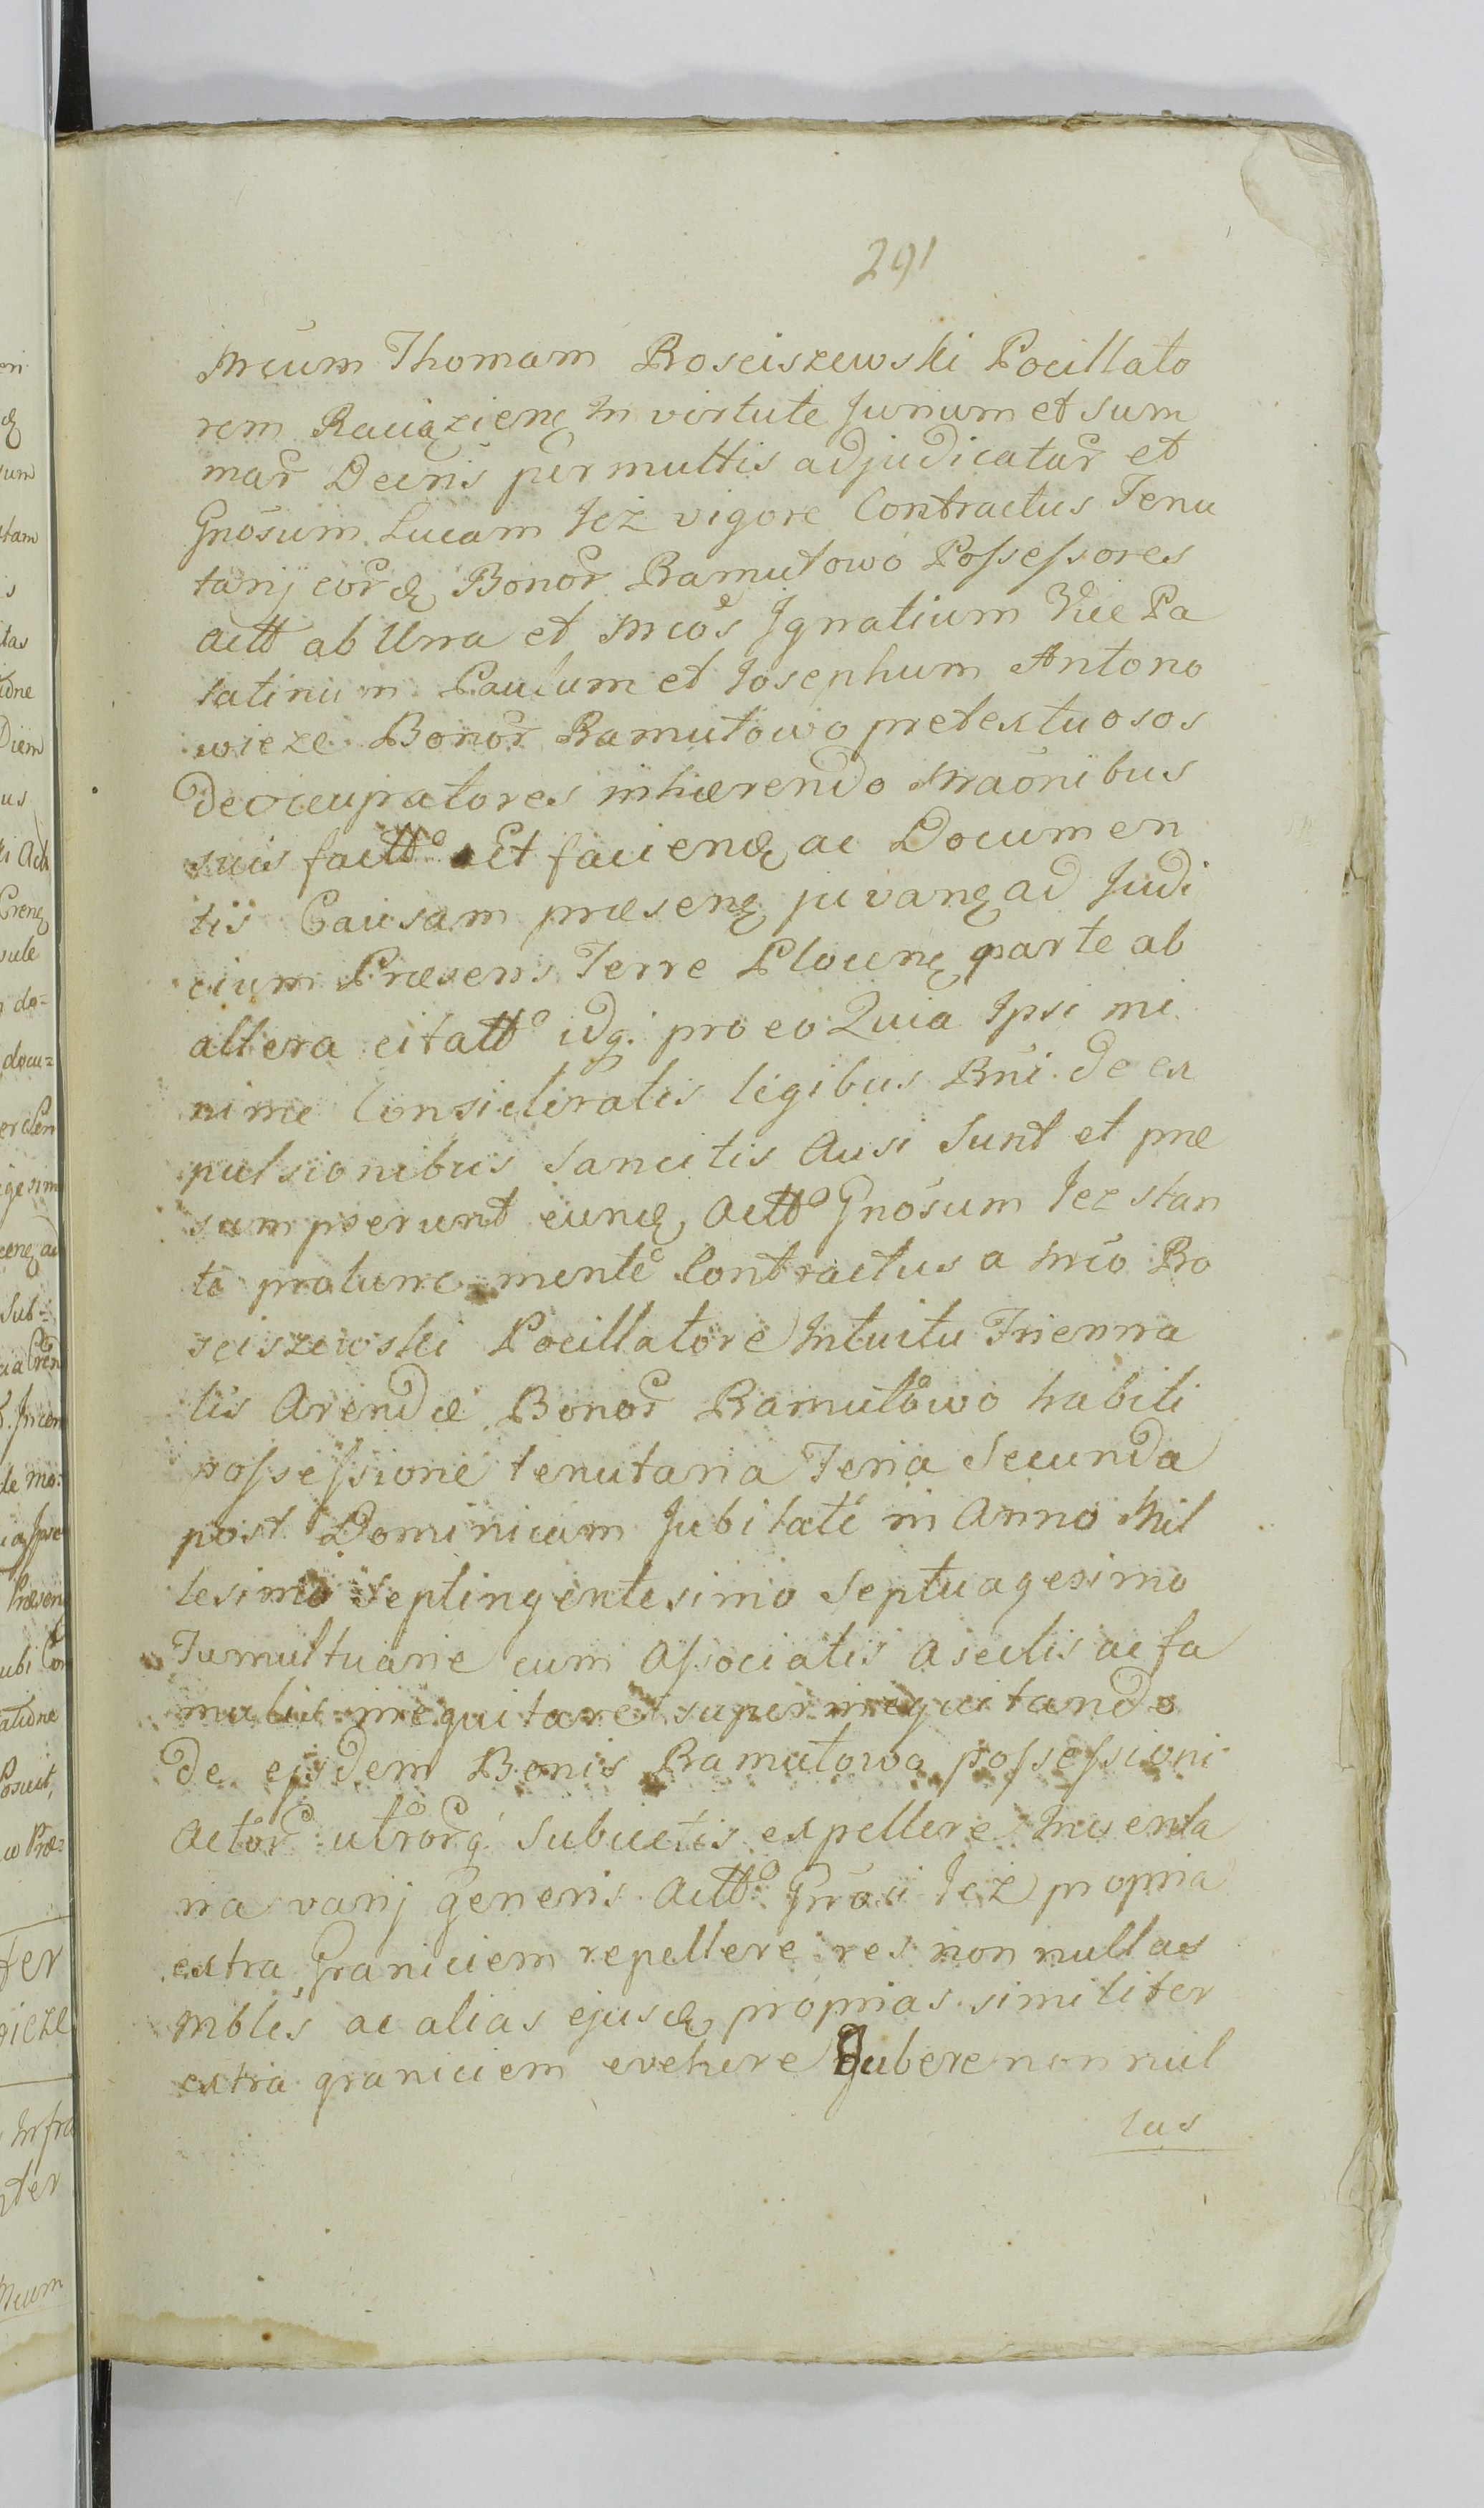 291
Mcum Thomam Rosciszewski Pocillato
rem Raciązien in virtute Jurium et sum
mar Decris per multis adjudicatar et
Gnosum Lucam Jeż vigore Contractus Tenu
tarij eord Bonor Ramutowo Possessores
actt ab Una et Mcos Ignatium Vice Pa
latinum Paulum et Josephum Antono
wicze Bonor Ramutowo pretextuosos
deoccupatores inhærendo Maonibus
suis factt et faciend ac Documen
tis Causam præsen juvan ad Judi
cium Præsens Terre Plocen parte ab
altera citatt idq. pro eo Quia Ipsi mi
nime Consideratis legibus Rni de ex
pulsionibus Sancitis Ausi Sunt et præ
sumpserunt eund Actt Gnosum Jez stan
te protunc mente Contractus a Mco Ro
sciszewski Pocillatore Intuitu Trienna
lis Arendæ Bonor Ramutowo habiti
possessione tenutaria Feria Secunda
post Dominicam Jubilate in Anno Mil
lesimo Septingentesimo Septuagesimo
Tumultuarie cum Associatis Aseclis ac fa
mulis inequitare superinequitando
de ejsdem Bonis Ramutowo possessioni
Actor utrorq. Subiectis expellere Inventa
ria varij generis Actt Gnosi Jeż propria
extra Graniciem repellere res non nullas
mbles ac alias ejusd proprias similiter
extra graniciem evehere Jubere non nul
las